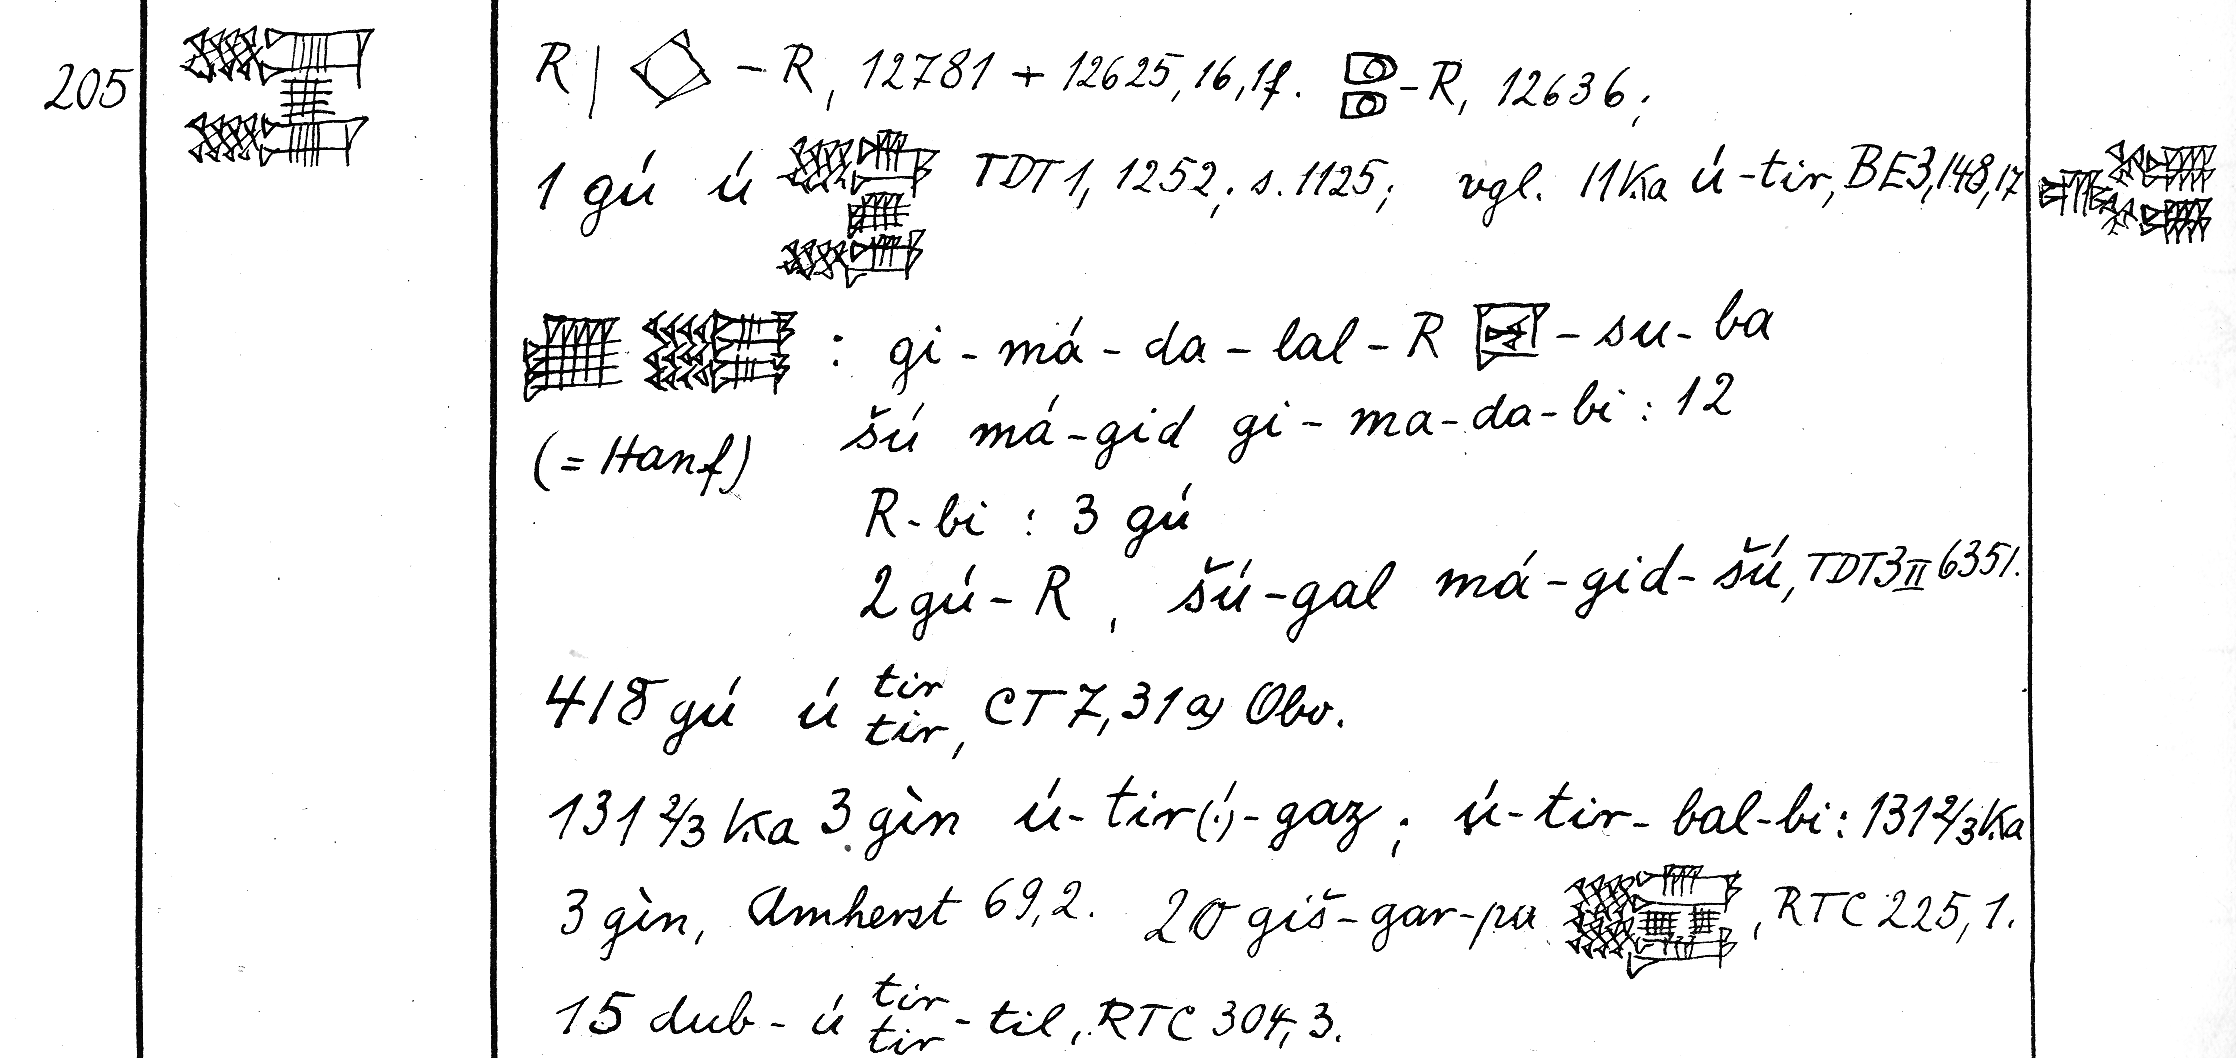 205 R | - R, 12781 + 12625, 16, 17. - R, 12636;
1 gú ú TDT 1, 1252; s. 1125; vgl. 11 Ka ú-tir, BE 3, 148, 17
: gi - má - da - lal - R - su - ba
šú má-gid gi - ma - da - bi : 12
(= Hanf)
R - bi : 3 gú
2 gú - R, šú-gal má-gid-šú, TDT 3 II 6351.
418 gú ú tir tir, CT 7, 31 a) Obv.
131 2/3 Ka 3 gìn ú-tir(!)-gaz; ú-tir-bal-bi: 131 2/3 Ka
3 gìn, Amherst 69, 2. 20 giš-gar-pa , RTC 225, 1.
15 dub - ú tir tir - til, RTC 304, 3.